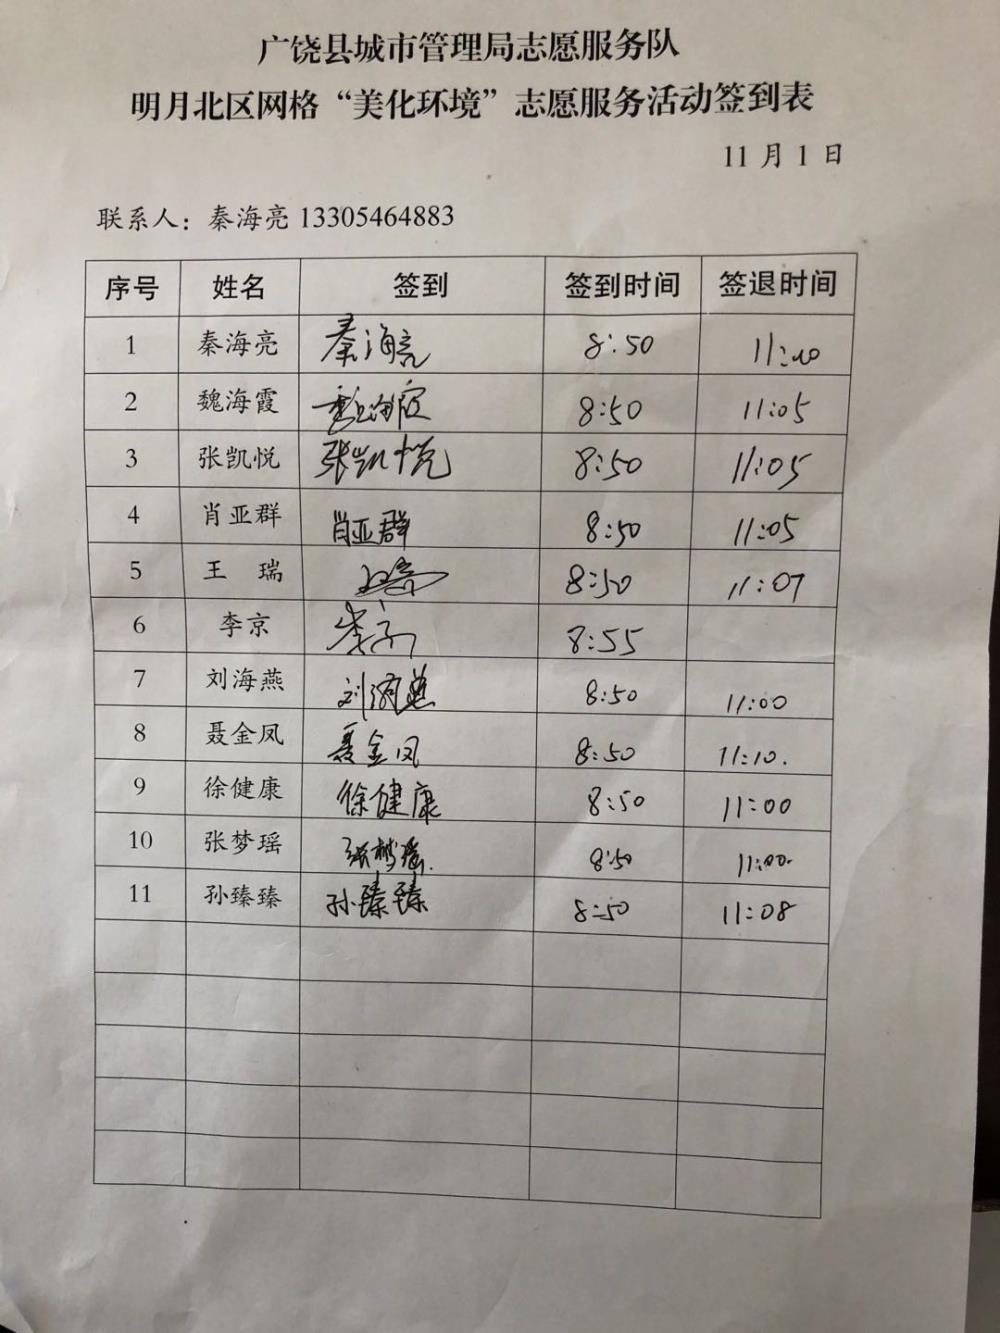 广饶县城市管理局志愿服务队
明月北区网格“美化环境”志愿服务活动签到表
11月1日
联系人：秦海亮 13305464883
序号 姓名 签到 签到时间 签退时间
1 秦海亮 秦海亮 8:50
2 魏海霞 魏海霞 8:50 11:05
3 张凯悦 张凯悦 8:50 11:05
4 肖亚群 肖亚群 8:50 11:05
5 王 瑞 8:50 11:07
6 李京 李京 8:55
7 刘海燕 刘海燕 8:50 11:00
8 聂金凤 聂金凤 8:50 11:10.
9 徐健康 徐健康 8:50 11:00
10 张梦瑶 张梦瑶. 8:50 11:00.
11 孙臻臻 孙臻臻 8:50 11:08